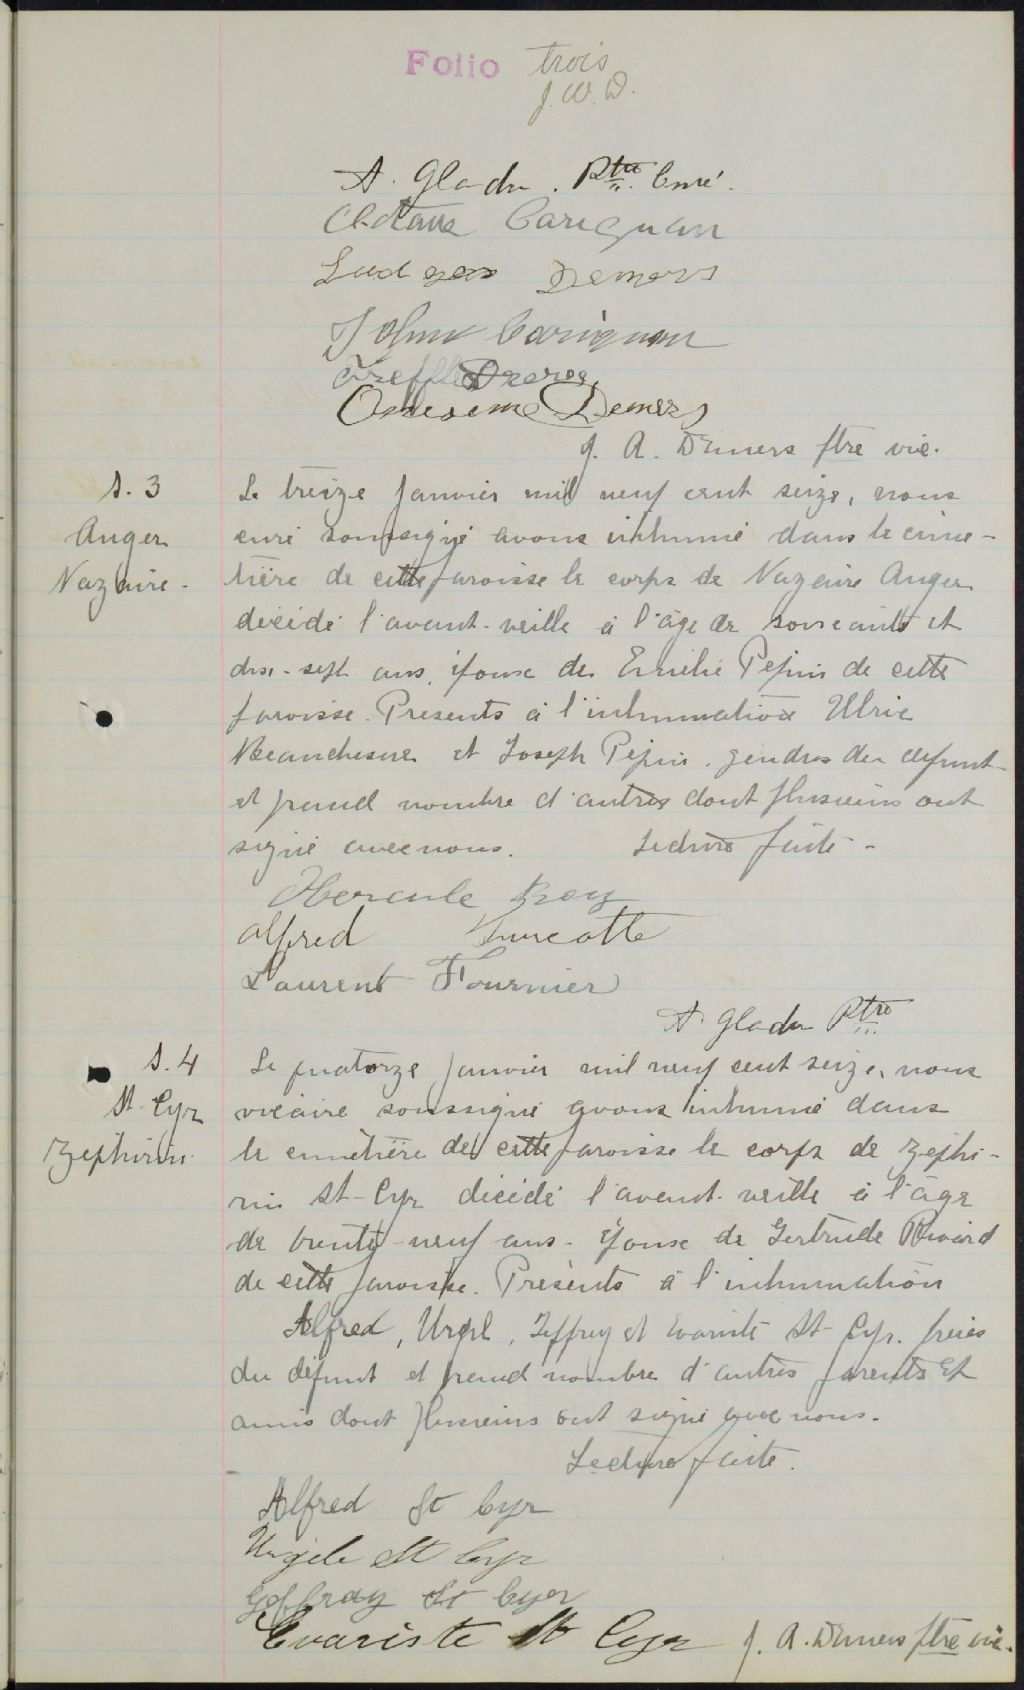 Folio trois
J. W. D.
A. Gladu. Ptre Curé.
Octave Carignan
Ludger Demers
John Carignan
Trefflé
Onesime Demers
J. A. Demers ptre vic.
S. 3
Anger
Nazaire -
Le treize janvier mil neuf cent seize, nous
curé soussigné avons inhumé dans le cime-
tière de cette paroisse le corps de Nazaire Anger
décédé l'avant-veille à l'âge de soixante et
dix-sept ans, époux de Emélie Pépin de cette
paroisse. Présents à l'inhumation Ulric
Beauchesne et Joseph Pépin, gendres du défunt
et grand nombre d'autres dont plusieurs ont
signé avec nous. Lecture faite -
Hercule Roy
Alfred Turcotte
Laurent Fournier
A. Gladu Ptre
S. 4
St-Cyr
Zéphirin
Le quatorze janvier mil neuf cent seize, nous
vicaire soussigné avons inhumé dans
le cimetière de cette paroisse le corps de Zéphi-
rin St-Cyr décédé l'avant-veille à l'âge
de trente-neuf ans - époux de Gertrude Rivard
de cette paroisse. Présents à l'inhumation
Alfred, Urgel, Jeffrey et Evariste St-Cyr. frères
du défunt et grand nombre d'autres parents et
amis dont plusieurs ont signé avec nous.
Lecture faite.
Alfred St Cyr
Urgele St Cyr
Geffray St Cyr
Evariste St Cyr J. A. Demers ptre vic.